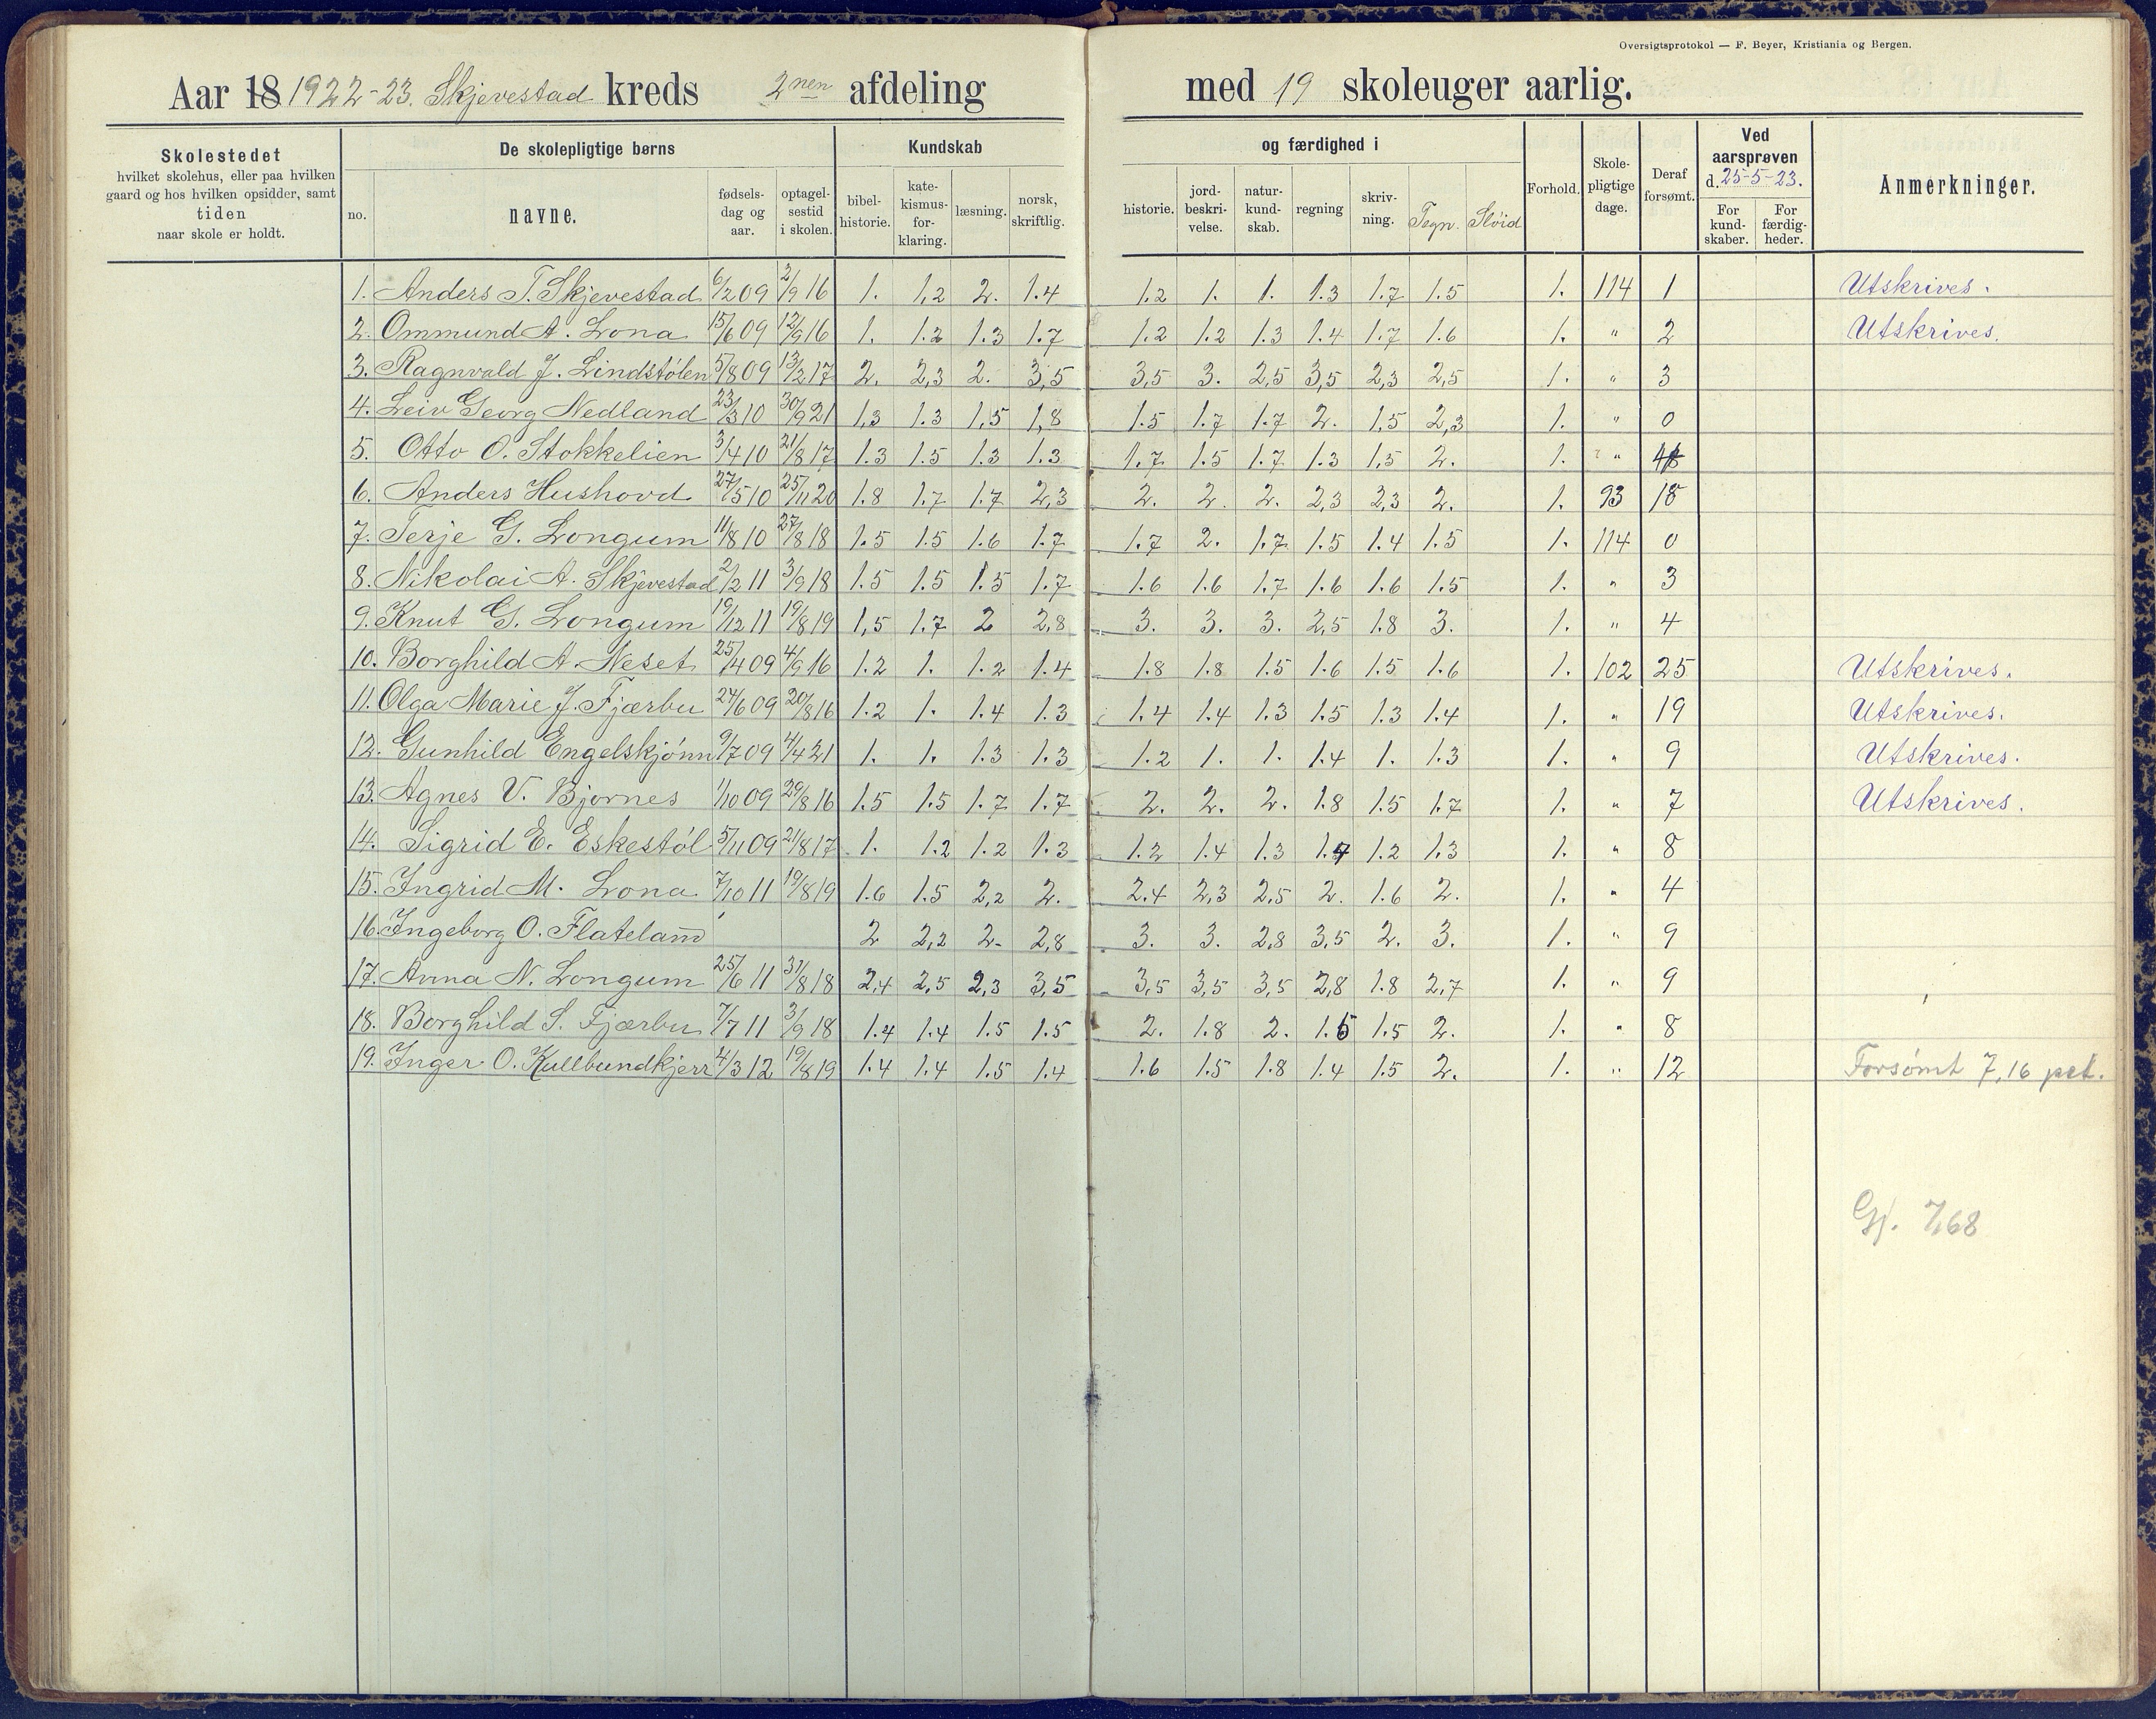 Oversigtsprotokol — F. Beyer, Kristiania og Bergen.
Aar 18 1922-23. Skjevestad kreds 2nen afdeling med 19 skoleuger aarlig.
Skolestedet
hvilket skolehus, eller paa hvilken
gaard og hos hvilken opsidder, samt
tiden
naar skole er holdt.
De skolepligtige børns
no. navne. fødsels-dag og aar. optagel-sestid i skolen.
Kundskab
bibel-historie. kate-kismus-for-klaring. læsning. norsk, skriftlig.
og færdighed i
historie. jord-beskri-velse. natur-kund-skab. regning skriv-ning. Tegn. Sløid
Forhold. Skole-pligtige dage. Deraf forsømt.
Ved aarsprøven d. 25-5-23.
For kund-skaber. For færdig-heder.
Anmerkninger.
1. Anders T. Skjevestad 6/2 09 2/9 16 1. 1,2 2. 1.4 1.2 1. 1. 1.3 1.7 1.5 1. 114 1 Utskrives.
2. Ommund A. Lona 15/6 09 12/9 16 1. 1.2 1.3 1.7 1.2 1.2 1.3 1.4 1.7 1.6 1. " 2 Utskrives.
3. Ragnvald J. Lindstølen 5/8 09 13/2 17 2. 2,3 2. 3,5 3,5 3. 2,5 3,5 2,3 2,5 1. " 3
4. Leiv Georg Nedland 23/3 10 30/9 21 1,3 1.3 1,5 1,8 1.5 1.7 1.7 2. 1,5 2,3 1. " 0
5. Otto O. Stokkelien 3/4 10 21/8 17 1.3 1.5 1.3 1.3 1.7 1.5 1.7 1.3 1,5 2. 1. "
6. Anders Hushovd 27/5 10 25/11 20 1.8 1.7 1.7 2,3 2. 2. 2. 2,3 2,3 2. 1. 93 18
7. Terje G. Longum 11/8 10 27/8 18 1.5 1.5 1.6 1.7 1.7 2. 1.7 1.5 1.4 1.5 1. 114 0
8. Nikolai A. Skjevestad 2/2 11 3/9 18 1.5 1.5 1.5 1.7 1.6 1.6 1.7 1.6 1.6 1.5 1. " 3
9. Knut G. Longum 19/12 11 19/8 19 1,5 1.7 2 2,8 3. 3. 3. 2,5 1.8 3. 1. " 4
10. Borghild A. Neset 25/4 09 4/9 16 1.2 1. 1.2 1.4 1.8 1.8 1.5 1.6 1.5 1.6 1. 102 25 Utskrives.
11. Olga Marie J. Fjærbu 24/6 09 20/8 16 1.2 1. 1.4 1.3 1.4 1.4 1.3 1.5 1.3 1.4 1. " 19 Utskrives.
12. Gunhild Engelskjønn 9/7 09 4/4 21 1. 1. 1.3 1.3 1.2 1. 1. 1.4 1. 1.3 1. " 9 Utskrives.
13. Agnes V. Bjornes 1/10 09 29/8 16 1.5 1.5 1.7 1.7 2. 2. 2. 1.8 1.5 1.7 1. " 7 Utskrives.
14. Sigrid E. Eskestøl 5/11 09 21/8 17 1. 1.2 1.2 1.3 1.2 1.4 1.3 1.4 1.2 1.3 1. " 8
15. Ingrid M. Lona 7/10 11 19/8 19 1.6 1.5 2,2 2. 2.4 2,3 2,5 2. 1.6 2. 1. " 4
16. Ingeborg O. Flateland 2 2,2 2- 2,8 3. 3. 2,8 3,5 2. 3. 1. " 9
17. Anna N. Longum 25/6 11 31/8 18 2,4 2,5 2,3 3,5 3,5 3,5 3,5 2,8 1.8 2,7 1. " 9
18. Borghild S. Fjærbu 7/7 11 3/9 18 1.4 1.4 1.5 1.5 2. 1.8 2. 1.5 1.5 2. 1. " 8
19. Inger O. Kullbundkjerr 4/3 12 19/8 19 1.4 1.4 1.5 1.4 1.6 1.5 1.8 1.4 1.5 2. 1. " 12 Forsømt 7,16 pct.
Gj. 7,68